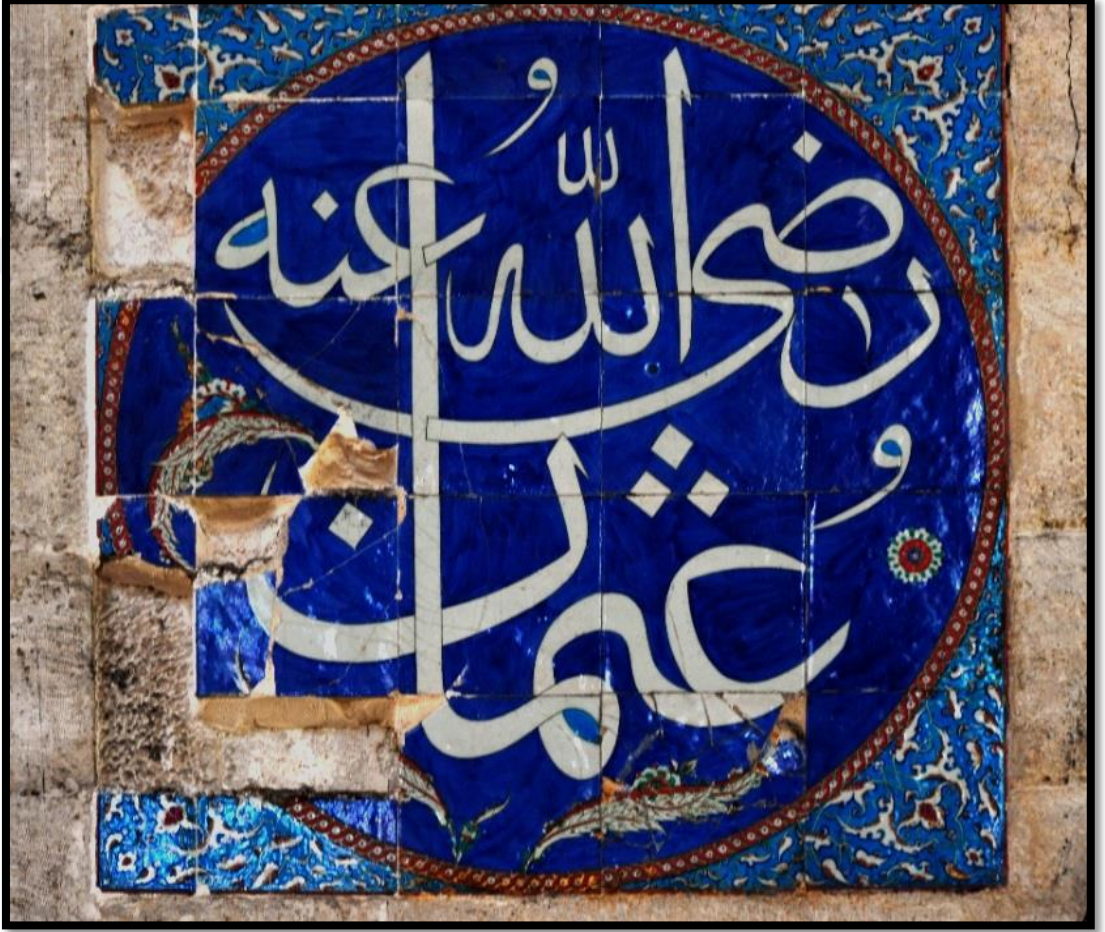 عثمان
رضی الله عنه